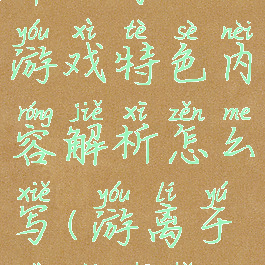 yóu xì tè sè nèi
游戏特色内
róng jiě xī zěn me
容解析怎么
xiě yóu lí yú
写(游离于